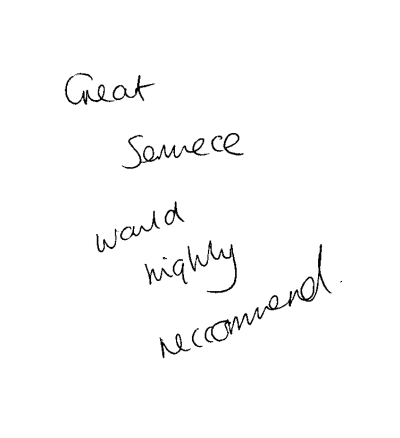 Great
Service
would
highly
reccommend.